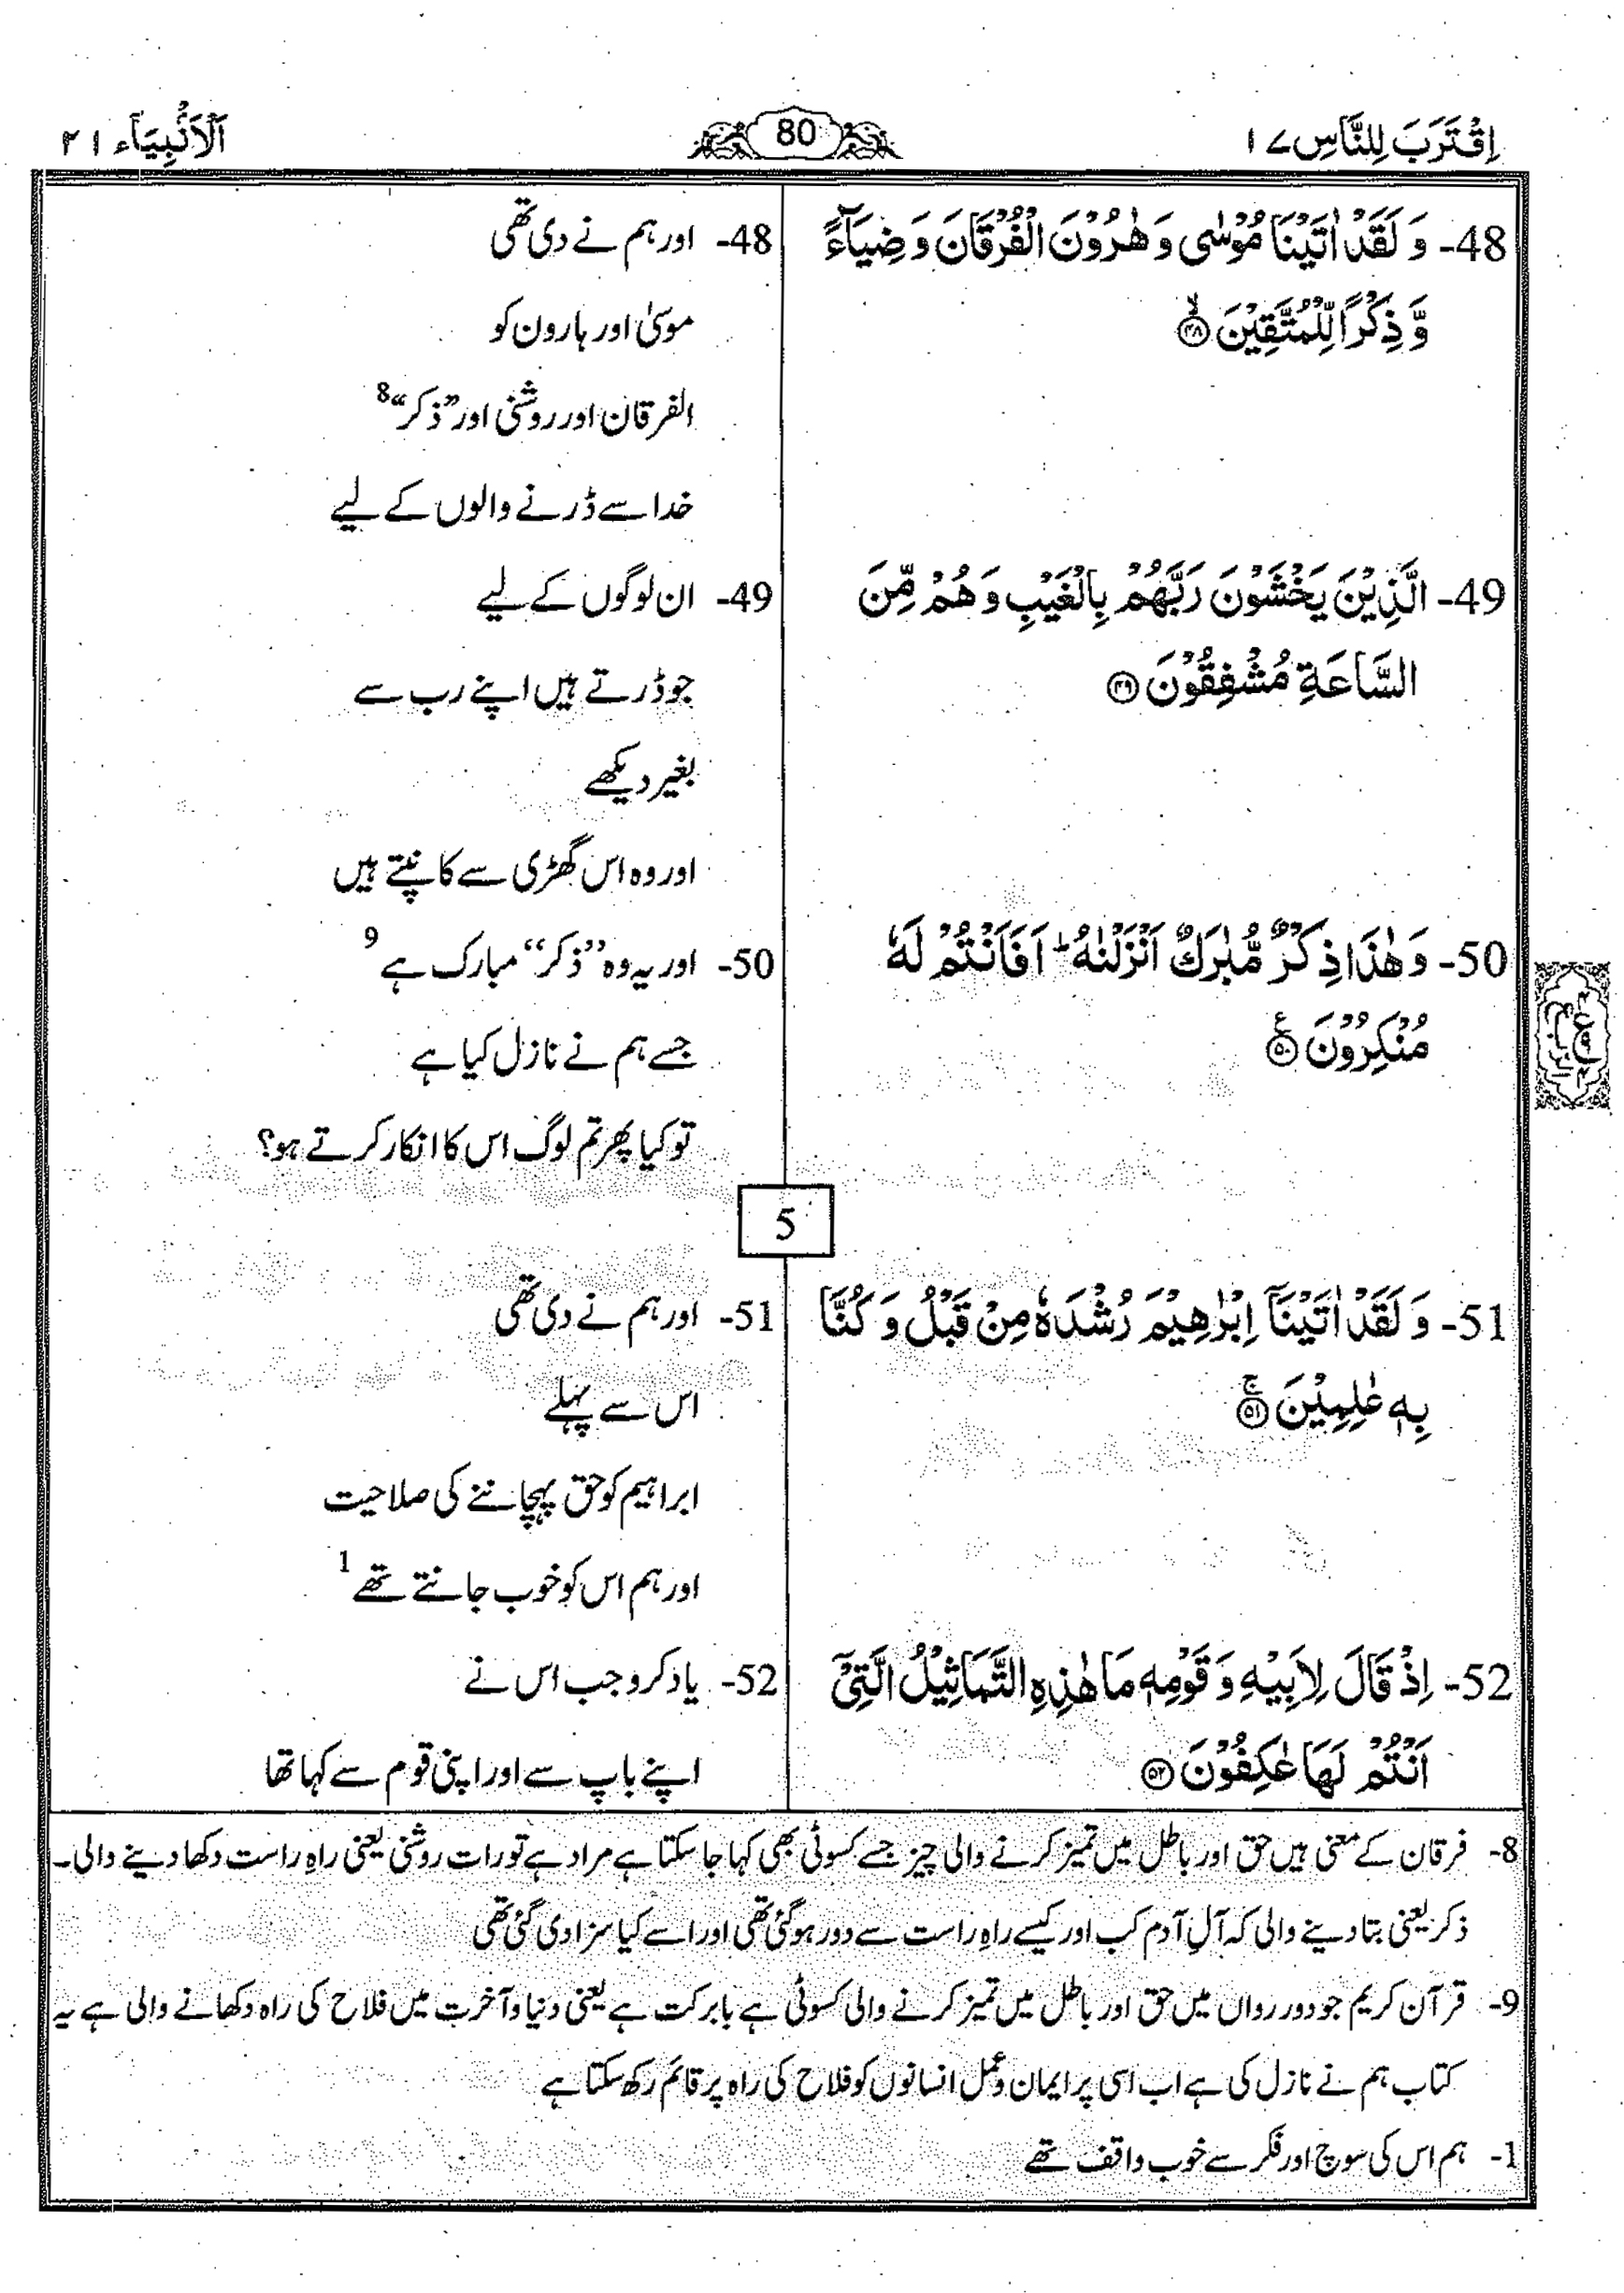 اِقْتَرَبَ لِلنَّاسِ ۱۷
80
اَلْاَنْۢبِیَآء ۲۱
48- وَ لَقَدْ اٰتَیْنَا مُوْسٰی وَ هٰرُوْنَ الْفُرْقَانَ وَ ضِیَآءً
وَّ ذِكْرًا لِّلْمُتَّقِیْنَ ۙ۴۸
49- الَّذِیْنَ یَخْشَوْنَ رَبَّهُمْ بِالْغَیْبِ وَ هُمْ مِّنَ
السَّاعَةِ مُشْفِقُوْنَ ۴۹
50- وَ هٰذَا ذِكْرٌ مُّبٰرَكٌ اَنْزَلْنٰهُ ؕ اَفَاَنْتُمْ لَهٗ
مُنْكِرُوْنَ ۠۵۰
48- اور ہم نے دی تھی
موسیٰ اور ہارون کو
الفرقان اور روشنی اور ”ذکر“ 8
خدا سے ڈرنے والوں کے لیے
49- ان لوگوں کے لیے
جو ڈرتے ہیں اپنے رب سے
بغیر دیکھے
اور وہ اس گھڑی سے کانپتے ہیں
50- اور یہ وہ ”ذکر“ مبارک ہے 9
جسے ہم نے نازل کیا ہے
تو کیا پھر تم لوگ اس کا انکار کرتے ہو؟
5
51- وَ لَقَدْ اٰتَیْنَاۤ اِبْرٰهِیْمَ رُشْدَهٗ مِنْ قَبْلُ وَ كُنَّا
بِهٖ عٰلِمِیْنَ ۚ۵۱
52- اِذْ قَالَ لِاَبِیْهِ وَ قَوْمِهٖ مَا هٰذِهِ التَّمَاثِیْلُ الَّتِیْۤ
اَنْتُمْ لَهَا عٰكِفُوْنَ ۵۲
51- اور ہم نے دی تھی
اس سے پہلے
ابراہیم کو حق پہچاننے کی صلاحیت
اور ہم اس کو خوب جانتے تھے 1
52- یاد کرو جب اس نے
اپنے باپ سے اور اپنی قوم سے کہا تھا
8- فرقان کے معنی ہیں حق اور باطل میں تمیز کرنے والی چیز جسے کسوٹی بھی کہا جا سکتا ہے مراد ہے تورات روشنی یعنی راہِ راست دکھا دینے والی۔
ذکر یعنی بتا دینے والی کہ آلِ آدم کب اور کیسے راہِ راست سے دور ہوگئی تھی اور اسے کیا سزا دی گئی تھی
9- قرآن کریم جو دور رواں میں حق اور باطل میں تمیز کرنے والی کسوٹی ہے بابرکت ہے یعنی دنیا و آخرت میں فلاح کی راہ دکھانے والی ہے یہ
کتاب ہم نے نازل کی ہے اب اسی پر ایمان و عمل انسانوں کو فلاح کی راہ پر قائم رکھ سکتا ہے
1- ہم اس کی سوچ اور فکر سے خوب واقف تھے